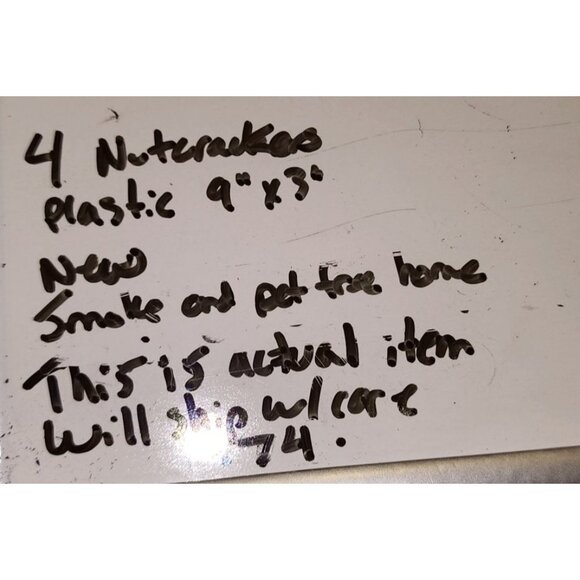 4 Nutcrackers
plastic 9" x 3"
New
Smoke and pet free home
This is actual item
Will ship w/care
74.